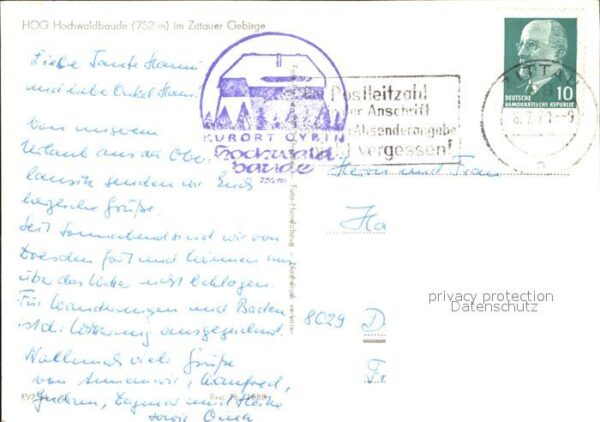 HOG Hochwaldbaude (752 m) im Zittauer Gebirge
Liebe Tante Hanni
und liebe Onkel Hans.
Von unserem
Urlaub aus der Ober
lausitz senden wir Euch
herzliche Grüße.
Seit Sonnabend sind wir von
Dresden fort und können uns
über das Wetter nicht beklagen.
Für Wanderungen und Baden
ist die Witterung ausgezeichnet.
Nochmals viele Grüße
von Annemarie, Manfred,
Dagmar und Heike
sowie Oma
KURORT OYBIN
Hochwald
baude
752 m
Postleitzahl
der Anschrift
Absenderangabe
vergessen!
ZITTAU
6.7.71-9
10
DEUTSCHE
DEMOKRATISCHE REPUBLIK
Herrn und Frau
Ha
8029 D
Fr
privacy protection
Datenschutz